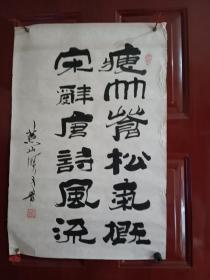 瘦竹蒼松氣概
宋辭唐詩風流
燕山